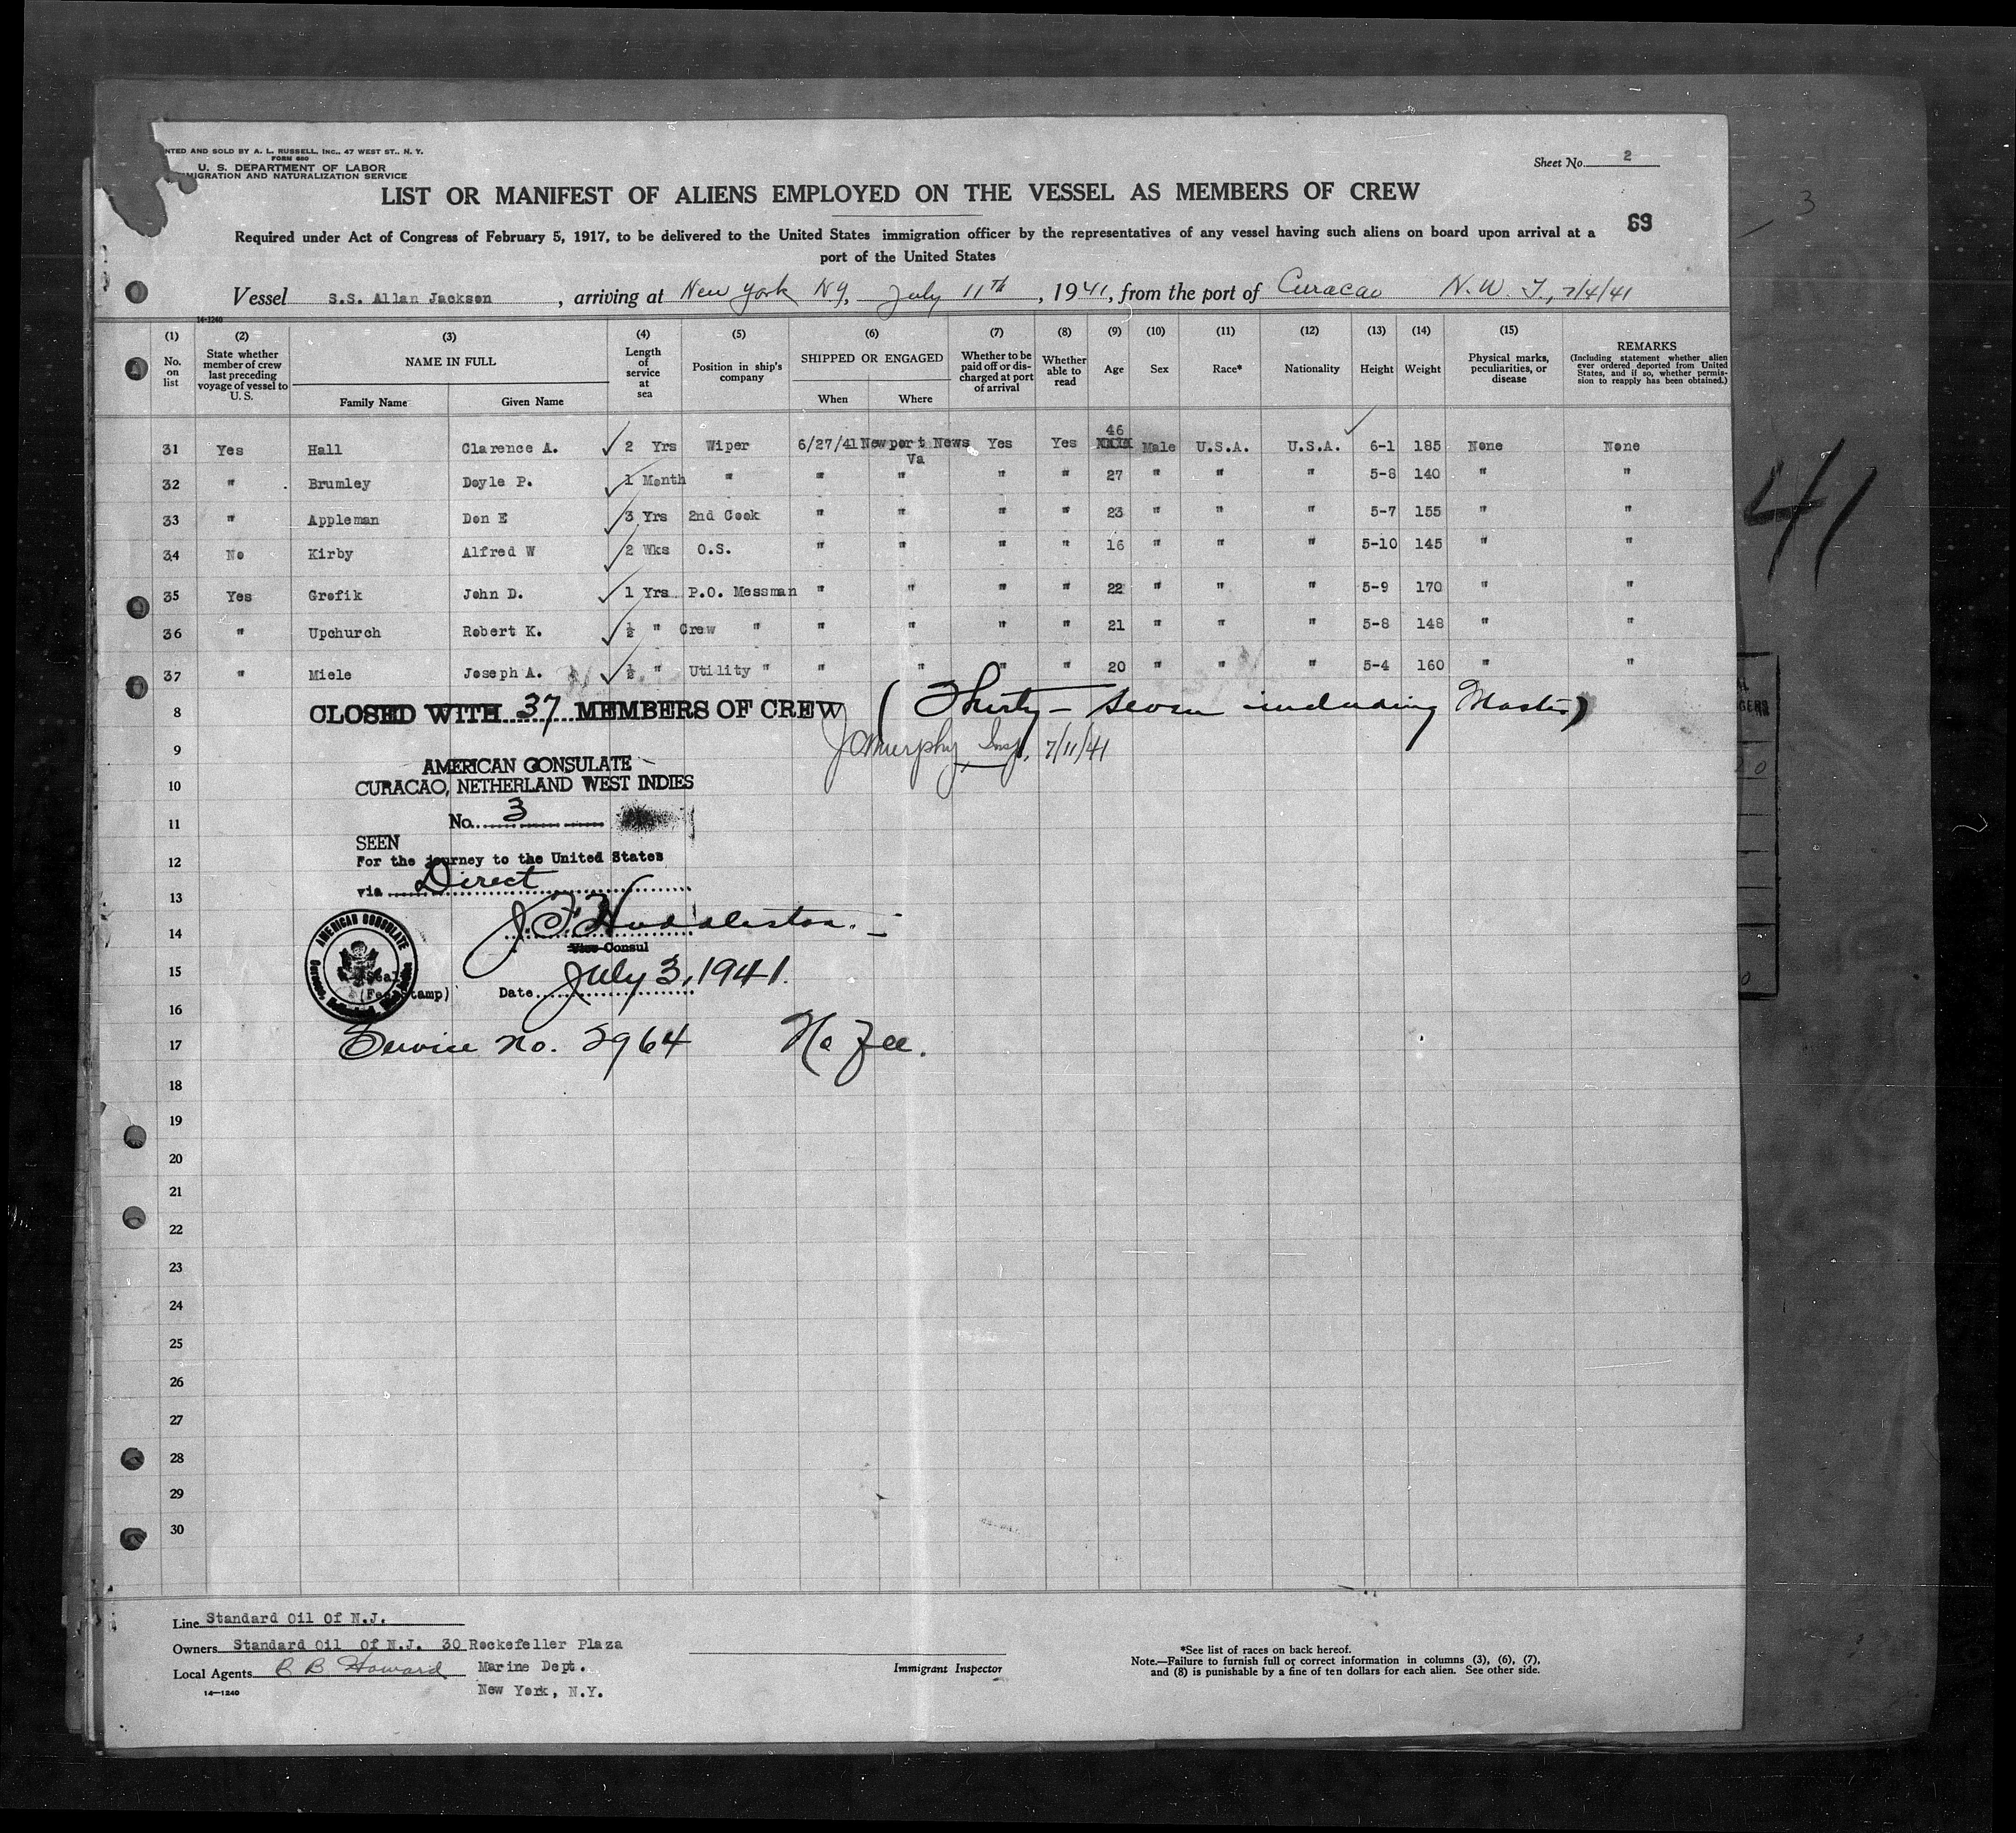 NTED AND SOLD BY A. L. RUSSELL, INC., 47 WEST ST., N. Y.
FORM 680
U. S. DEPARTMENT OF LABOR
MIGRATION AND NATURALIZATION SERVICE
Sheet No. 2
LIST OR MANIFEST OF ALIENS EMPLOYED ON THE VESSEL AS MEMBERS OF CREW
69
3
Required under Act of Congress of February 5, 1917, to be delivered to the United States immigration officer by the representatives of any vessel having such aliens on board upon arrival at a
port of the United States
Vessel S.S. Allan Jackson, arriving at New York NY, July 11th, 1941, from the port of Curacao N.W.I., 7/4/41
14-1240
(1) No. on list
(2) State whether member of crew last preceding voyage of vessel to U. S.
(3) NAME IN FULL Family Name Given Name
(4) Length of service at sea
(5) Position in ship's company
(6) SHIPPED OR ENGAGED When Where
(7) Whether to be paid off or discharged at port of arrival
(8) Whether able to read
(9) Age
(10) Sex
(11) Race*
(12) Nationality
(13) Height
(14) Weight
(15) Physical marks, peculiarities, or disease
REMARKS (Including statement whether alien ever ordered deported from United States, and if so, whether permission to reapply has been obtained.)
31 Yes Hall Clarence A. ✓ 2 Yrs Wiper 6/27/41 Newport News Va Yes Yes 46 Male U.S.A. U.S.A. ✓ 6-1 185 None None
32 " Brumley Doyle P. ✓ 1 Month " " " " " 27 " " " 5-8 140 " "
33 " Appleman Don E ✓ 3 Yrs 2nd Cook " " " " 23 " " " 5-7 155 " "
34 No Kirby Alfred W ✓ 2 Wks O.S. " " " " 16 " " " 5-10 145 " "
35 Yes Grofik John D. ✓ 1 Yrs P.O. Messman " " " " 22 " " " 5-9 170 " "
36 " Upchurch Robert K. ✓ ½ " Crew " " " " " 21 " " " 5-8 148 " "
37 " Miele Joseph A. ✓ ½ " Utility " " " " " 20 " " " 5-4 160 " "
8 CLOSED WITH 37 MEMBERS OF CREW (Thirty-seven including Master)
9 J Murphy Insp. 7/11/41
AMERICAN CONSULATE
10 CURACAO, NETHERLAND WEST INDIES
11 No. 3
SEEN
12 For the journey to the United States
13 via Direct
14 J F Huddleston.
Vice Consul
AMERICAN CONSULATE
15 Seal July 3, 1941.
(Fee Stamp) Date
16
17 Service No. 2964 No Fee.
18
19
20
21
22
23
24
25
26
27
28
29
30
41
Line Standard Oil Of N.J.
Owners Standard Oil Of N.J. 30 Rockefeller Plaza
Local Agents B B Howard Marine Dept.
New York, N.Y.
14—1240
Immigrant Inspector
*See list of races on back hereof.
Note.—Failure to furnish full or correct information in columns (3), (6), (7),
and (8) is punishable by a fine of ten dollars for each alien. See other side.